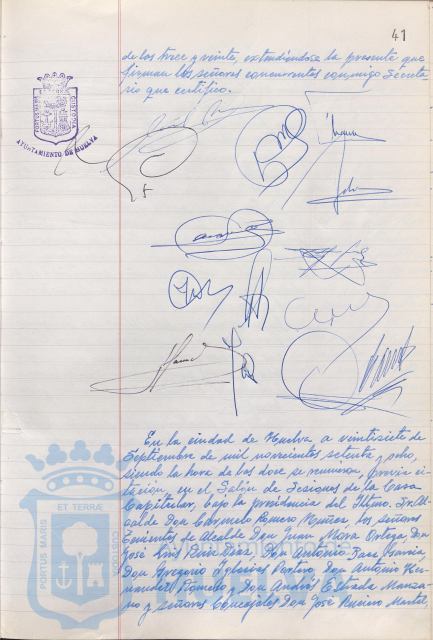 41
de los trece y veinte, extendiéndose la presente que
firman los señores concurrentes conmigo Secreta-
rio que certifico.
PORTUS MARIS ET TERRAE CUSTODIA
AYUNTAMIENTO DE HUELVA
En la ciudad de Huelva a veintisiete de
Septiembre de mil novecientos setenta y ocho,
siendo la hora de las doce se reunieron, previa ci-
tación, en el Salón de Sesiones de la Casa
Capitular, bajo la presidencia del Iltmo. Sr. Al-
calde Don Carmelo Romero Núñez, los señores
Tenientes de Alcalde Don Juan Mora Ortega, Don
José Luis Ruiz Díaz, Don Antonio García,
Don Gregorio Iglesias Don Antonio Her-
nández y Don Andrés Estrada Manza-
no y señores Concejales Don José
PORTUS MARIS ET TERRAE CUSTODIA